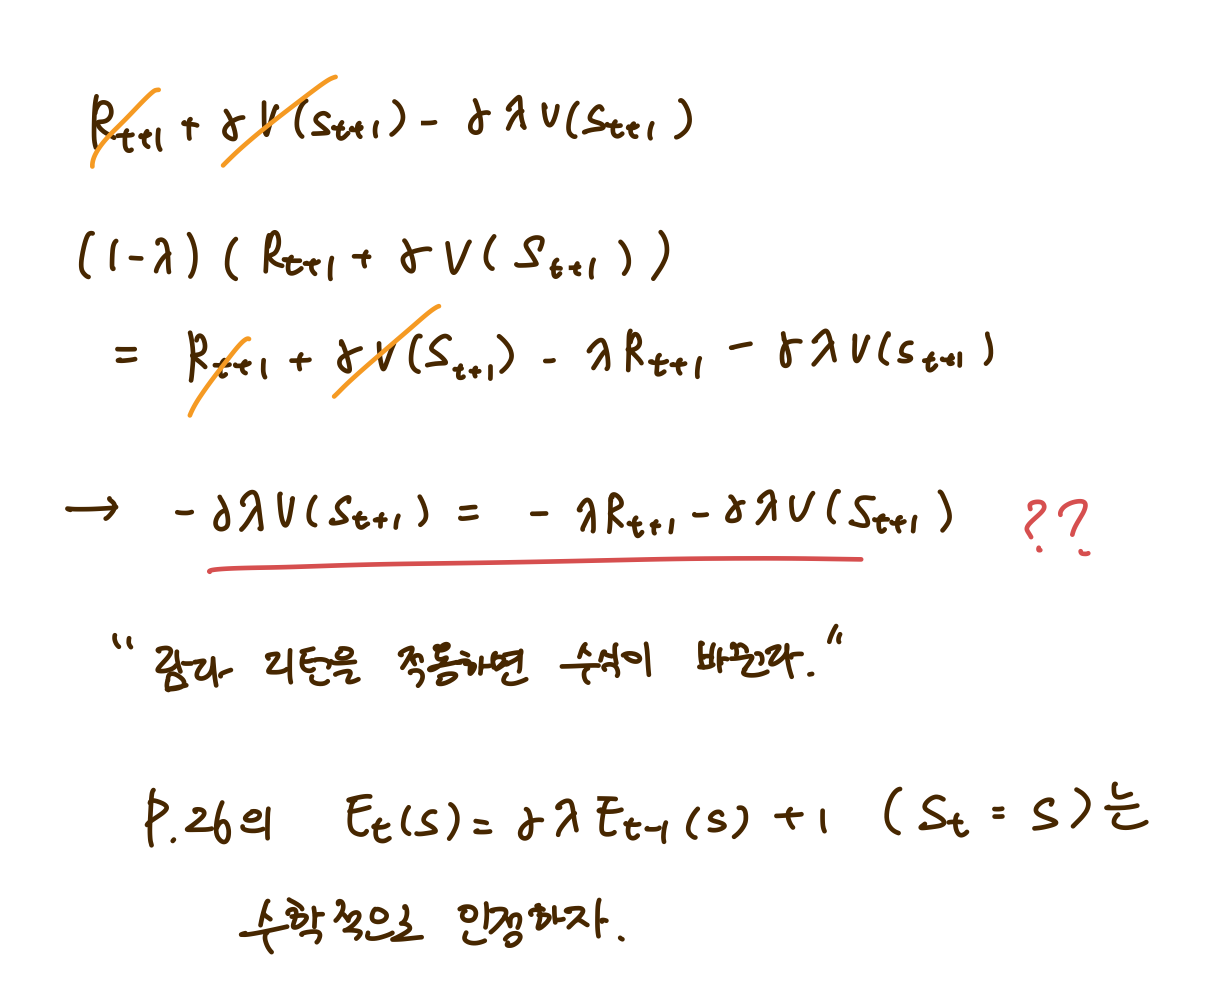 R_{t+1} + γV(S_{t+1}) - γλV(S_{t+1})
(1-λ)(R_{t+1} + γV(S_{t+1}))
= R_{t+1} + γV(S_{t+1}) - λR_{t+1} - γλV(S_{t+1})
→ -γλV(S_{t+1}) = -λR_{t+1} - γλV(S_{t+1}) ??
"람다 리턴을 적용하면 수식이 바뀐다."
P.26의 E_t(s) = γλE_{t-1}(s) + 1 (S_t = S)는
수학적으로 인정하자.